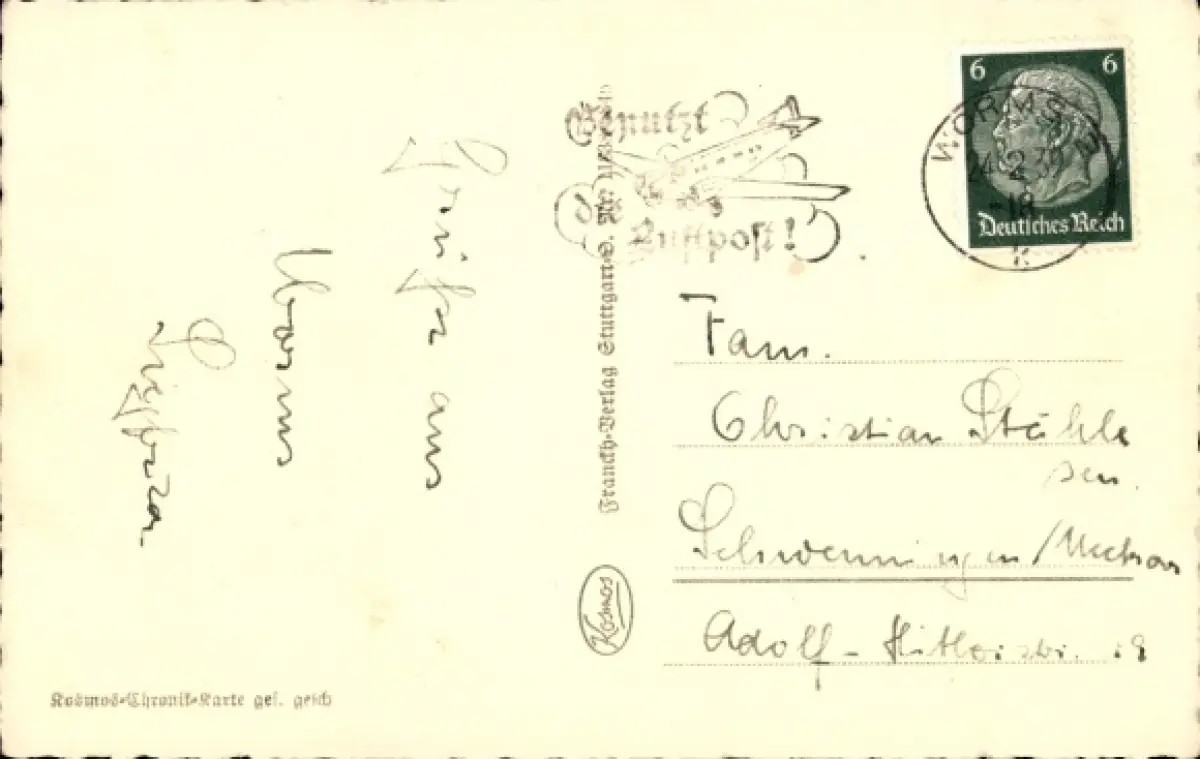 Grüße aus
Worms
Benutzt
Luftpost!
Franckh-Verlag Stuttgart-O.
Kosmos
6 6
Deutsches Reich
WORMS
24.2.39
-18
k
Fam.
Christian Stähle
sen.
Schwenningen/Neckar
Adolf-Hitlerstr. 19
Kosmos-Chronik-Karte ges. gesch